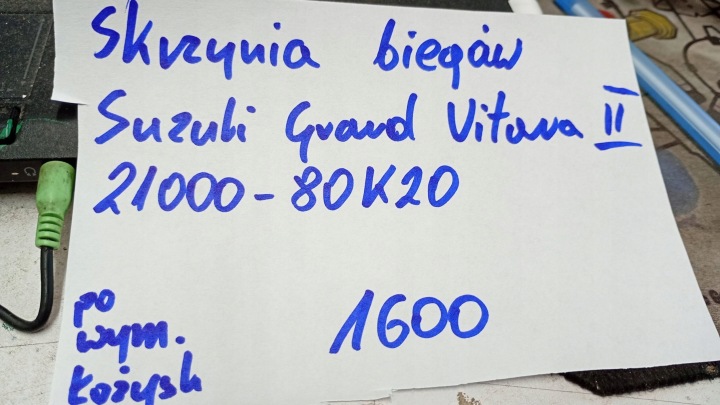 Skrzynia biegów
Suzuki Grand Vitara II
21000-80K20
1600
po
wym.
łożysk